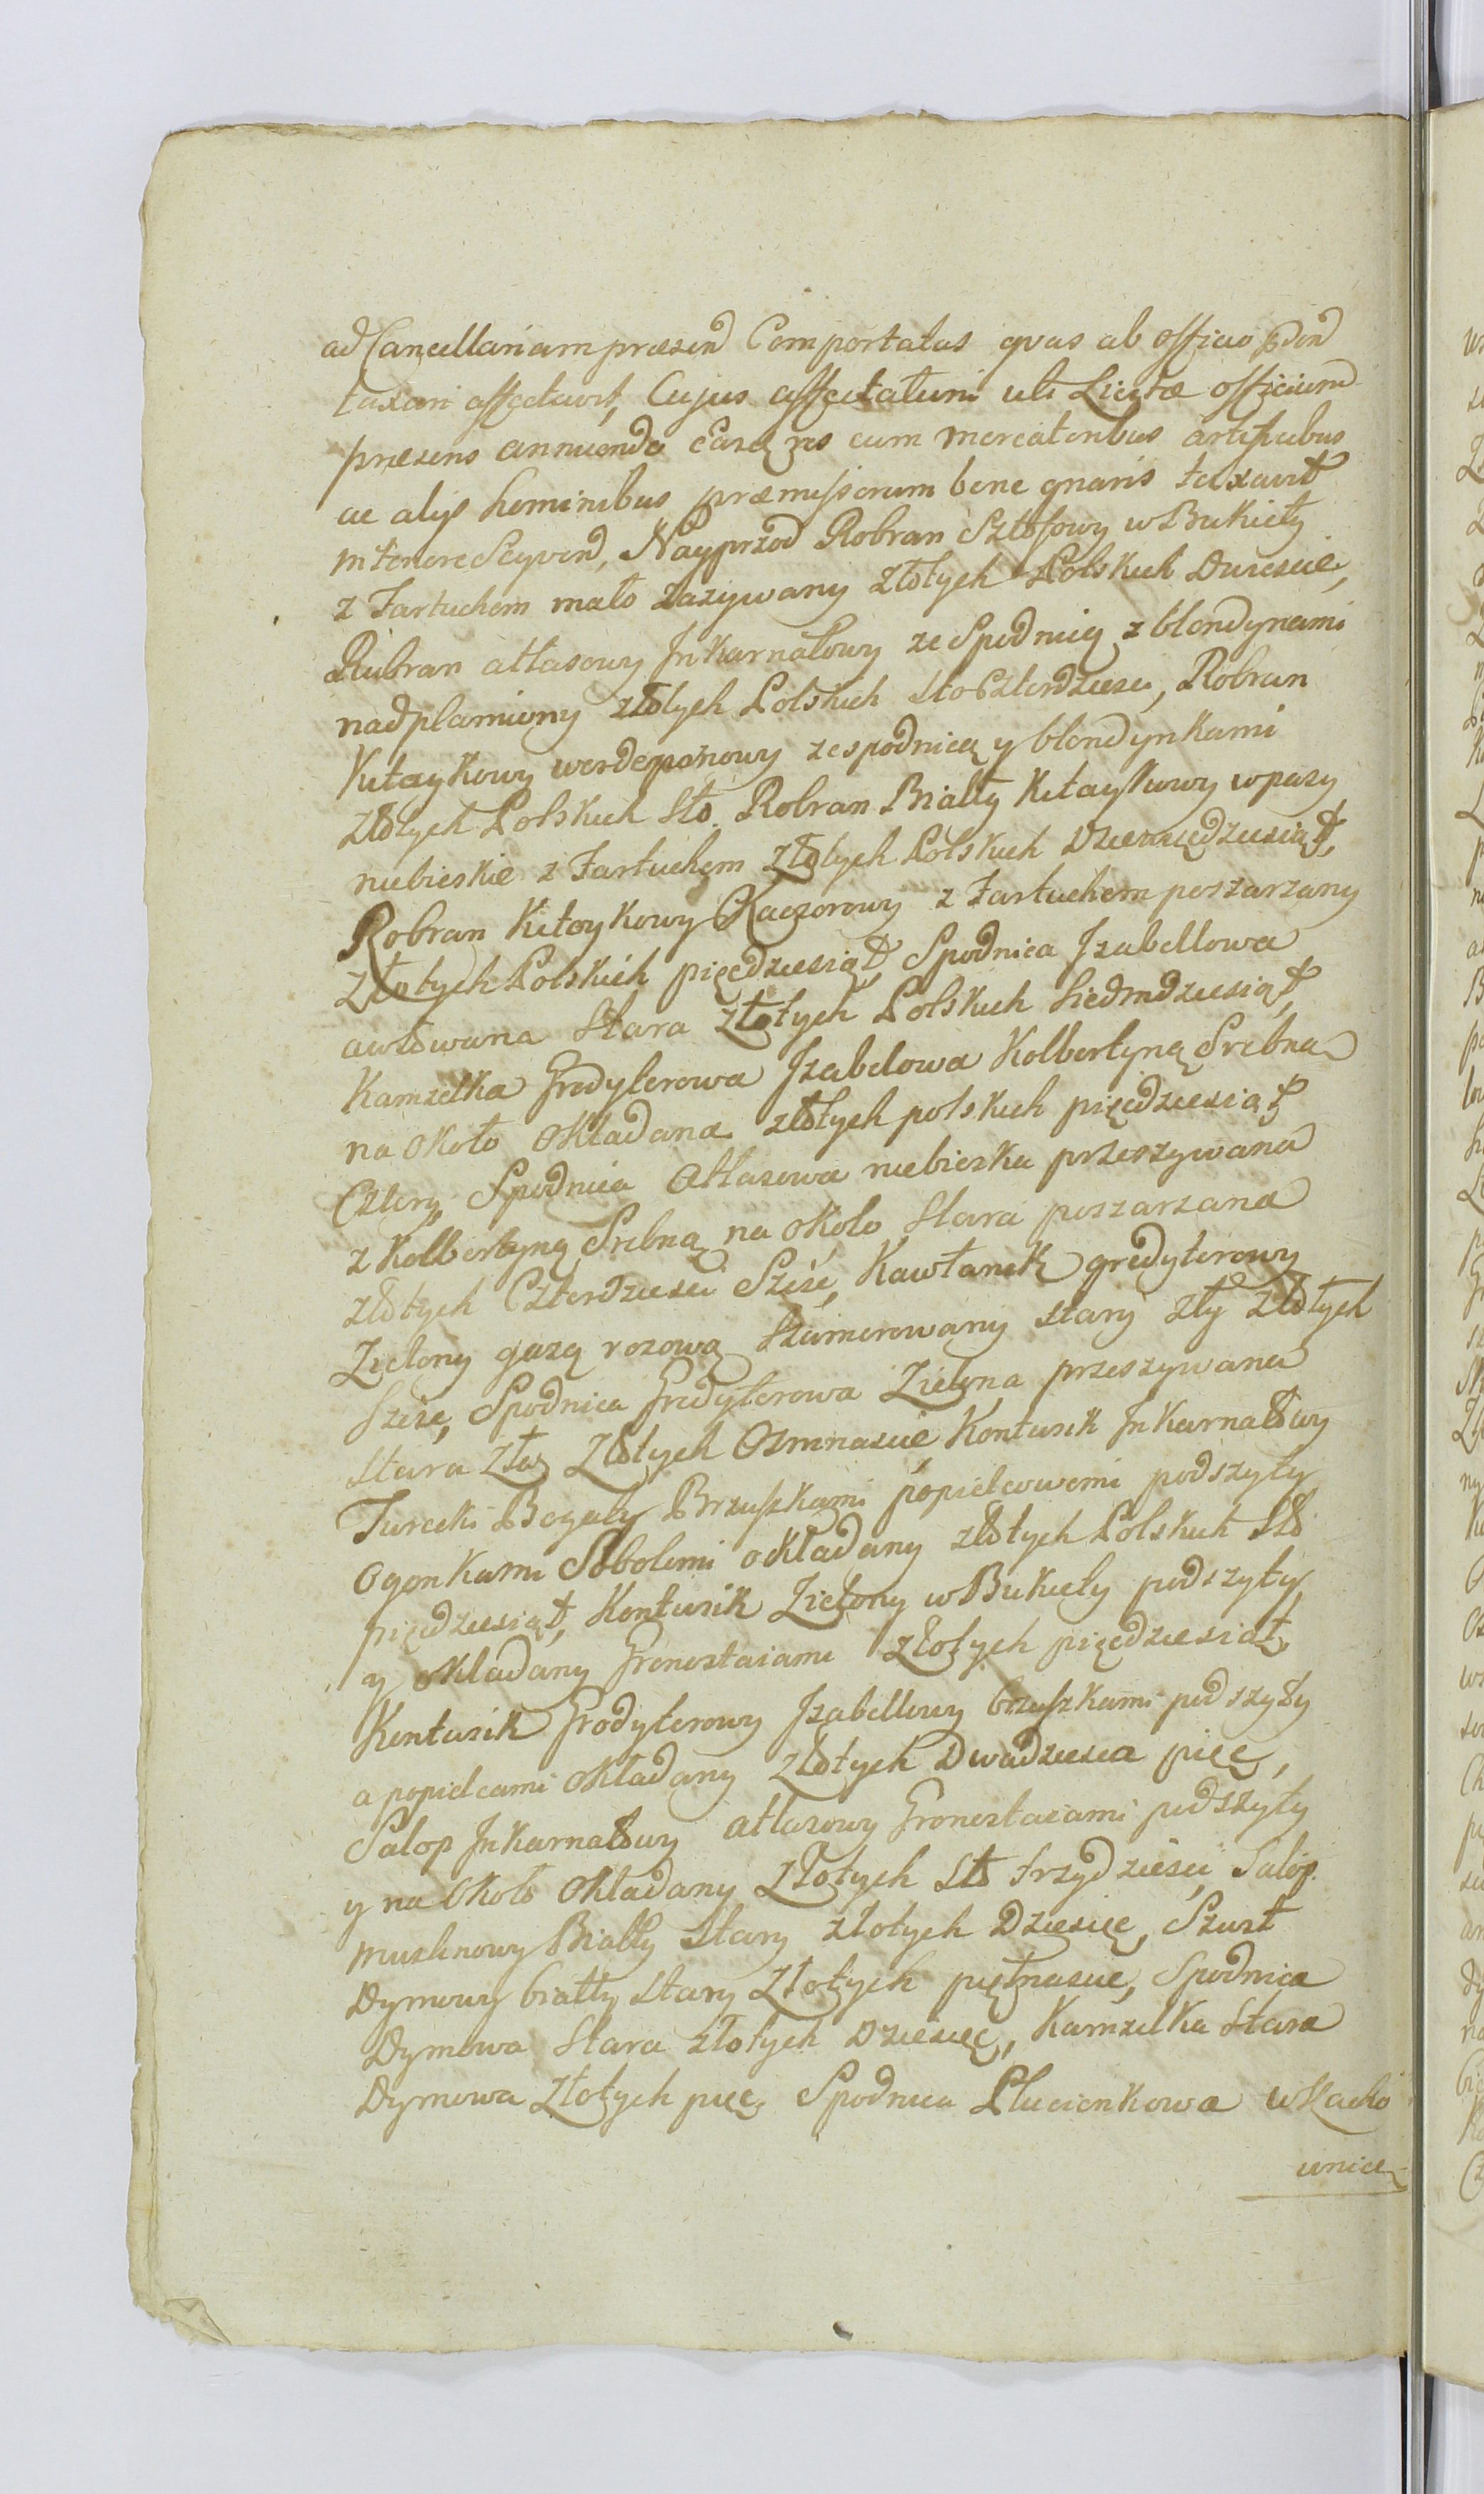 ad Cancellariam præsend Comportatas qvas ab officio
taxari affectavit, Cujus affectatuni uti Licitæ officium
præsens annuendo Easq res cum mercatoribus artificibus
ac alijs hominibus præmissorum bene gnaris taxavit
in tenore Seqvend, Nayprzod Robran Sztofowy w Bukiety
z Fartuchem mało zazywany Złotych Polskich Dwiescie,
Rubran atłasowy Inkarnatowy ze Spodnicą z blondynami
nadplamiony złotych Polskich sto Czterdziesci, Robran
Kitaykowy werdeponowy ze spodnicą y blondynkami
Złotych Polskich Sto. Robran Biały Kitaykowy w pasy
niebieskie z Fartuchem Złotych Polskich Dziewięcdziesiąt,
Robran Kitaykowy Kaczorowy z Fartuchem poszarzany
Złotych Polskich pięcdziesiąt, Spodnica Izabellowa
stara złotych Polskich siedmdziesiąt,
Kamzelka Grodyterowa Izabelowa Kolbertyną Srebną
na około okładana złotych polskich pięcdziesiąt
Cztery, Spodnica Atłasowa niebieska przeszywana
z Kolbertyną Srebną na około stara poszarzana
złotych Czterdziesci Sześć, Kawtanik grodyterowy
Zielony gazą rozową szamerowany stary zły złotych
Sześć, Spodnica Grodyterowa Zielona przeszywana
stara zła Złotych Osmnascie Kontusik Inkarnatowy
Turecki Bogaty Brzuszkami popielcowemi podszyty
Ogonkami Sobolemi okładany złotych Polskich Sto
pięcdziesiąt, Kontusik Zielony w Bukiety podszyty
y okładany Gronostaiami złotych pięcdziesiąt,
Kontusik Grodyterowy Izabellowy brzuszkami podszyty
a popielcami okładany złotych Dwadziescia pięć,
Salop Inkarnatowy atłasowy Gronostaiami podszyty
y na około okładany Złotych sto trzydziesci Salop
muslinowy Biały stary złotych Dziesięć, Szust
Dymowy biały stary Złotych piętnascie, Spodnica
Dymowa stara złotych Dziesięć, Kamzelka stara
Dymowa Złotych pięć Spodnica Płucienkowa w Szacho
wnicę